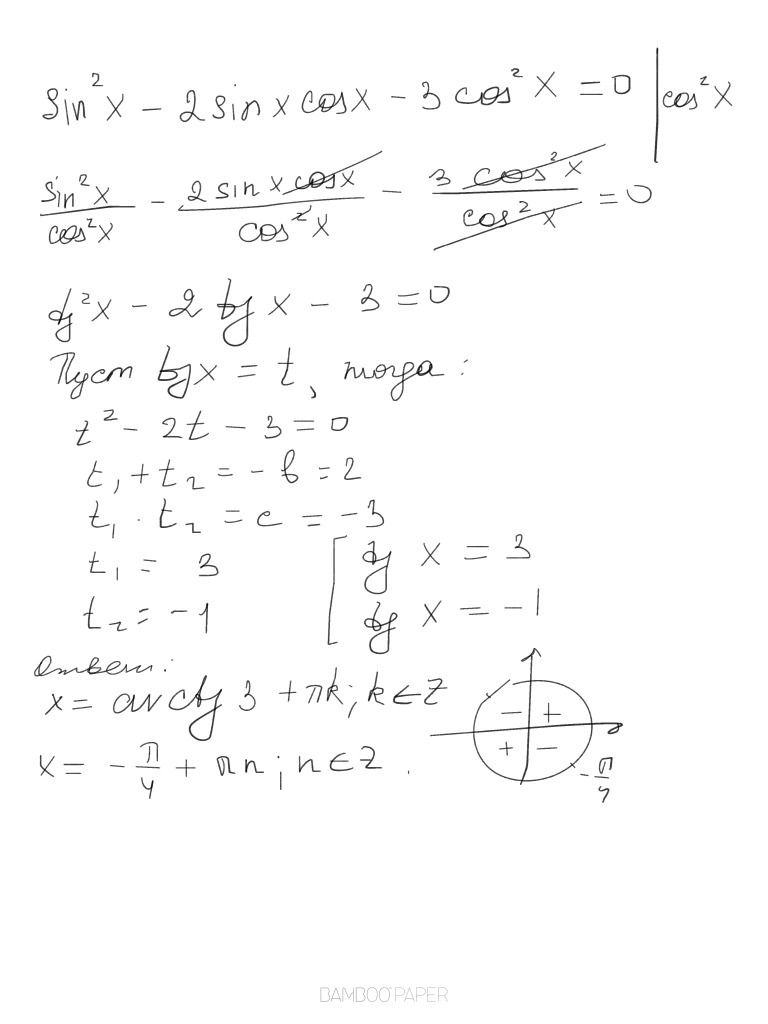 sin²x - 2 sin x cos x - 3 cos²x = 0 | cos²x
sin²x/cos²x - 2 sin x cos x/cos²x - 3 cos²x/cos²x = 0
tg²x - 2 tg x - 3 = 0
Пуст tgx = t, тогда:
t² - 2t - 3 = 0
t₁ + t₂ = - b = 2
t₁ · t₂ = c = -3
t₁ = 3 [ tg x = 3
t₂ = -1 tg x = -1
Ответ:
x = arctg 3 + πk; k ∈ Z
- +
x = - π/4 + πn; n ∈ Z .
+ -
- π/4
BAMBOO PAPER